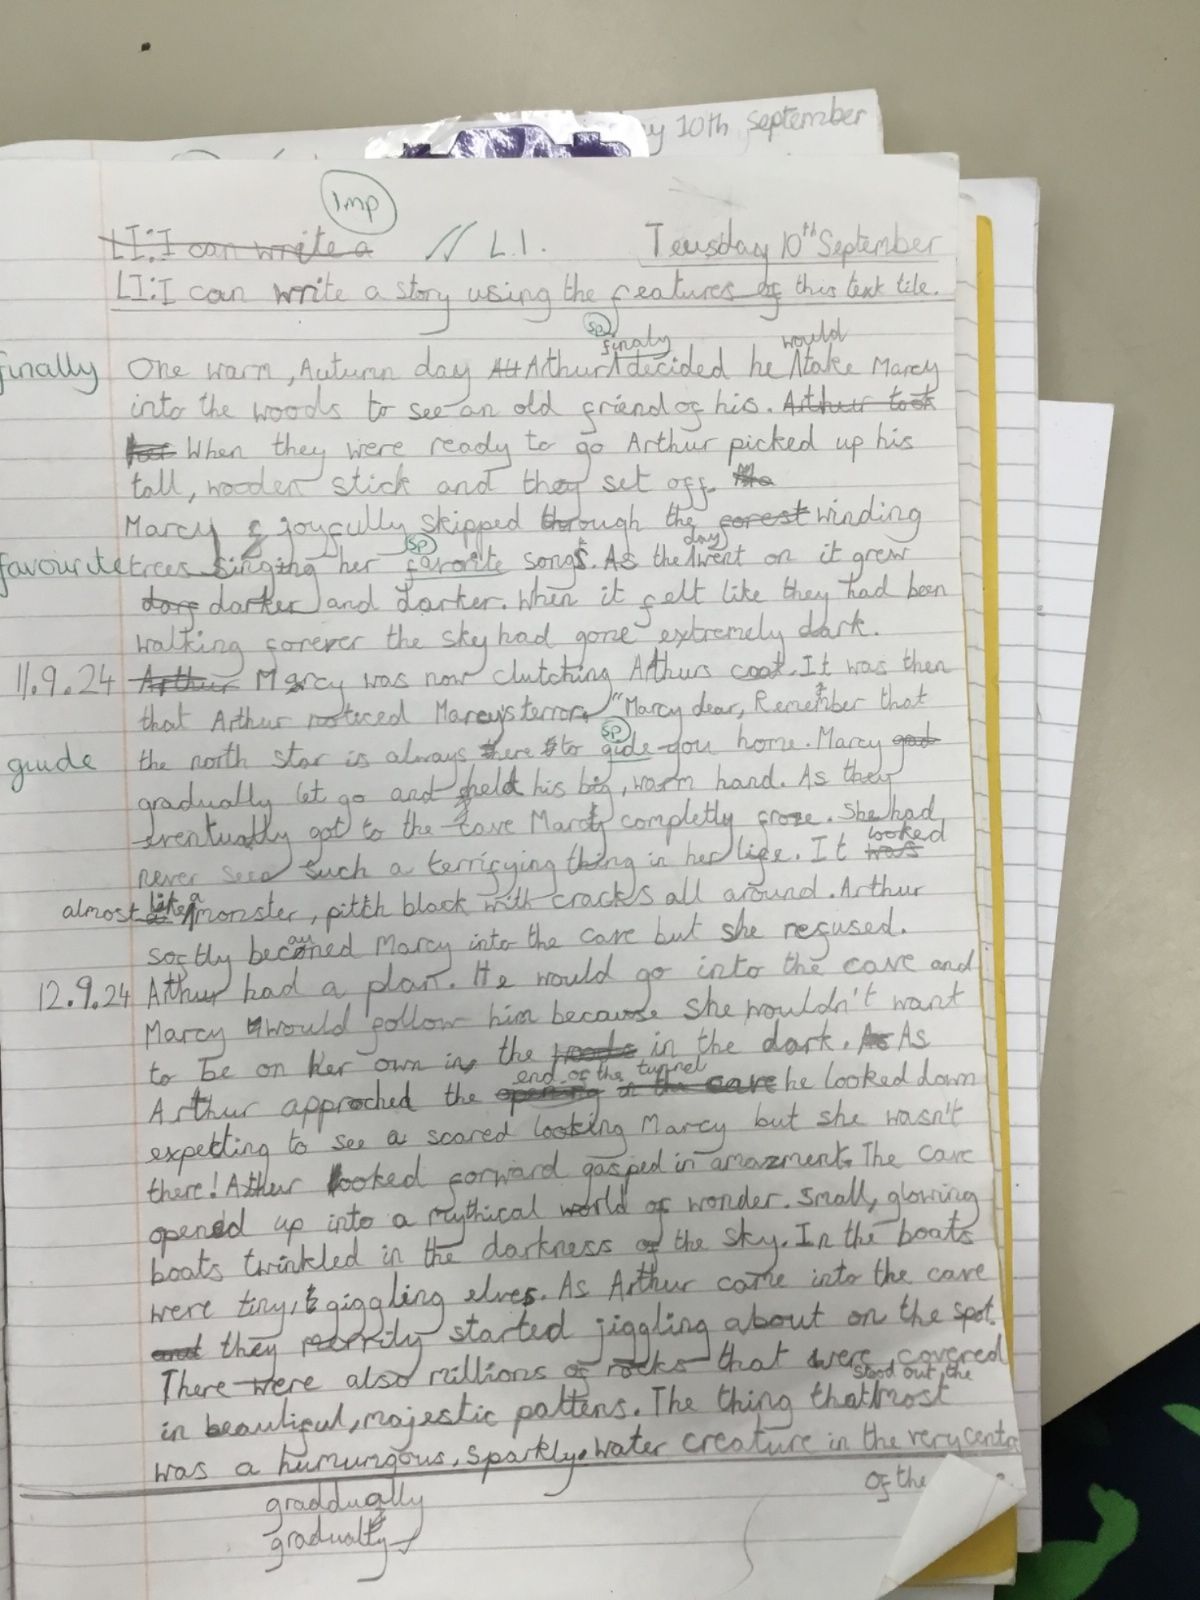 y 10th September
Imp
LI: I can write a // L.I. Teusday 10th September
LI: I can write a story using the features of this text tile.
sp
finaly would
finally One warm, Autumn day Arthur decided he take Marcy
into the woods to see an old friend of his. Arthur took
When they were ready to go Arthur picked up his
tall, wooden stick and they set off.
Marcy joyfully skipped through the forest winding
sp day
favourite trees singing her favorite songs. As the went on it grew
darker and darker. When it felt like they had been
walking forever the sky had gone extremely dark.
11.9.24 Arthur Marcy was now clutching Arthurs coat. It was then
that Arthur noticed Marcys terror. "Marcy dear, Remember that
sp
guide the north star is always there to gide you home. Marcy
gradually let go and held his big, warm hand. As they
eventually got to the cave Marcy completly froze. She had
looked
never seen such a terrifying thing in her life. It was
like a
almost monster, pitch black with cracks all around. Arthur
softly becaned Marcy into the cave but she refused.
12.9.24 Arthur had a plan. He would go into the cave and
Marcy would follow him because she wouldn't want
to be on her own in the woods in the dark. As As
end of the tunnel
Arthur approched the opening in the cave he looked down
expecting to see a scared looking Marcy but she wasn't
there! Athur looked forward gasped in amazment. The cave
opened up into a mythical world of wonder. Small, glowing
boats twinkled in the darkness of the sky. In the boats
were tiny, giggling elves. As Arthur came into the cave
and they merrily started jiggling about on the spot.
There were also millions of rocks that were covered
stood out the
in beautiful, majestic pattens. The thing that most
was a humungous, sparkly, water creature in the very centre
of the
graddually
gradually